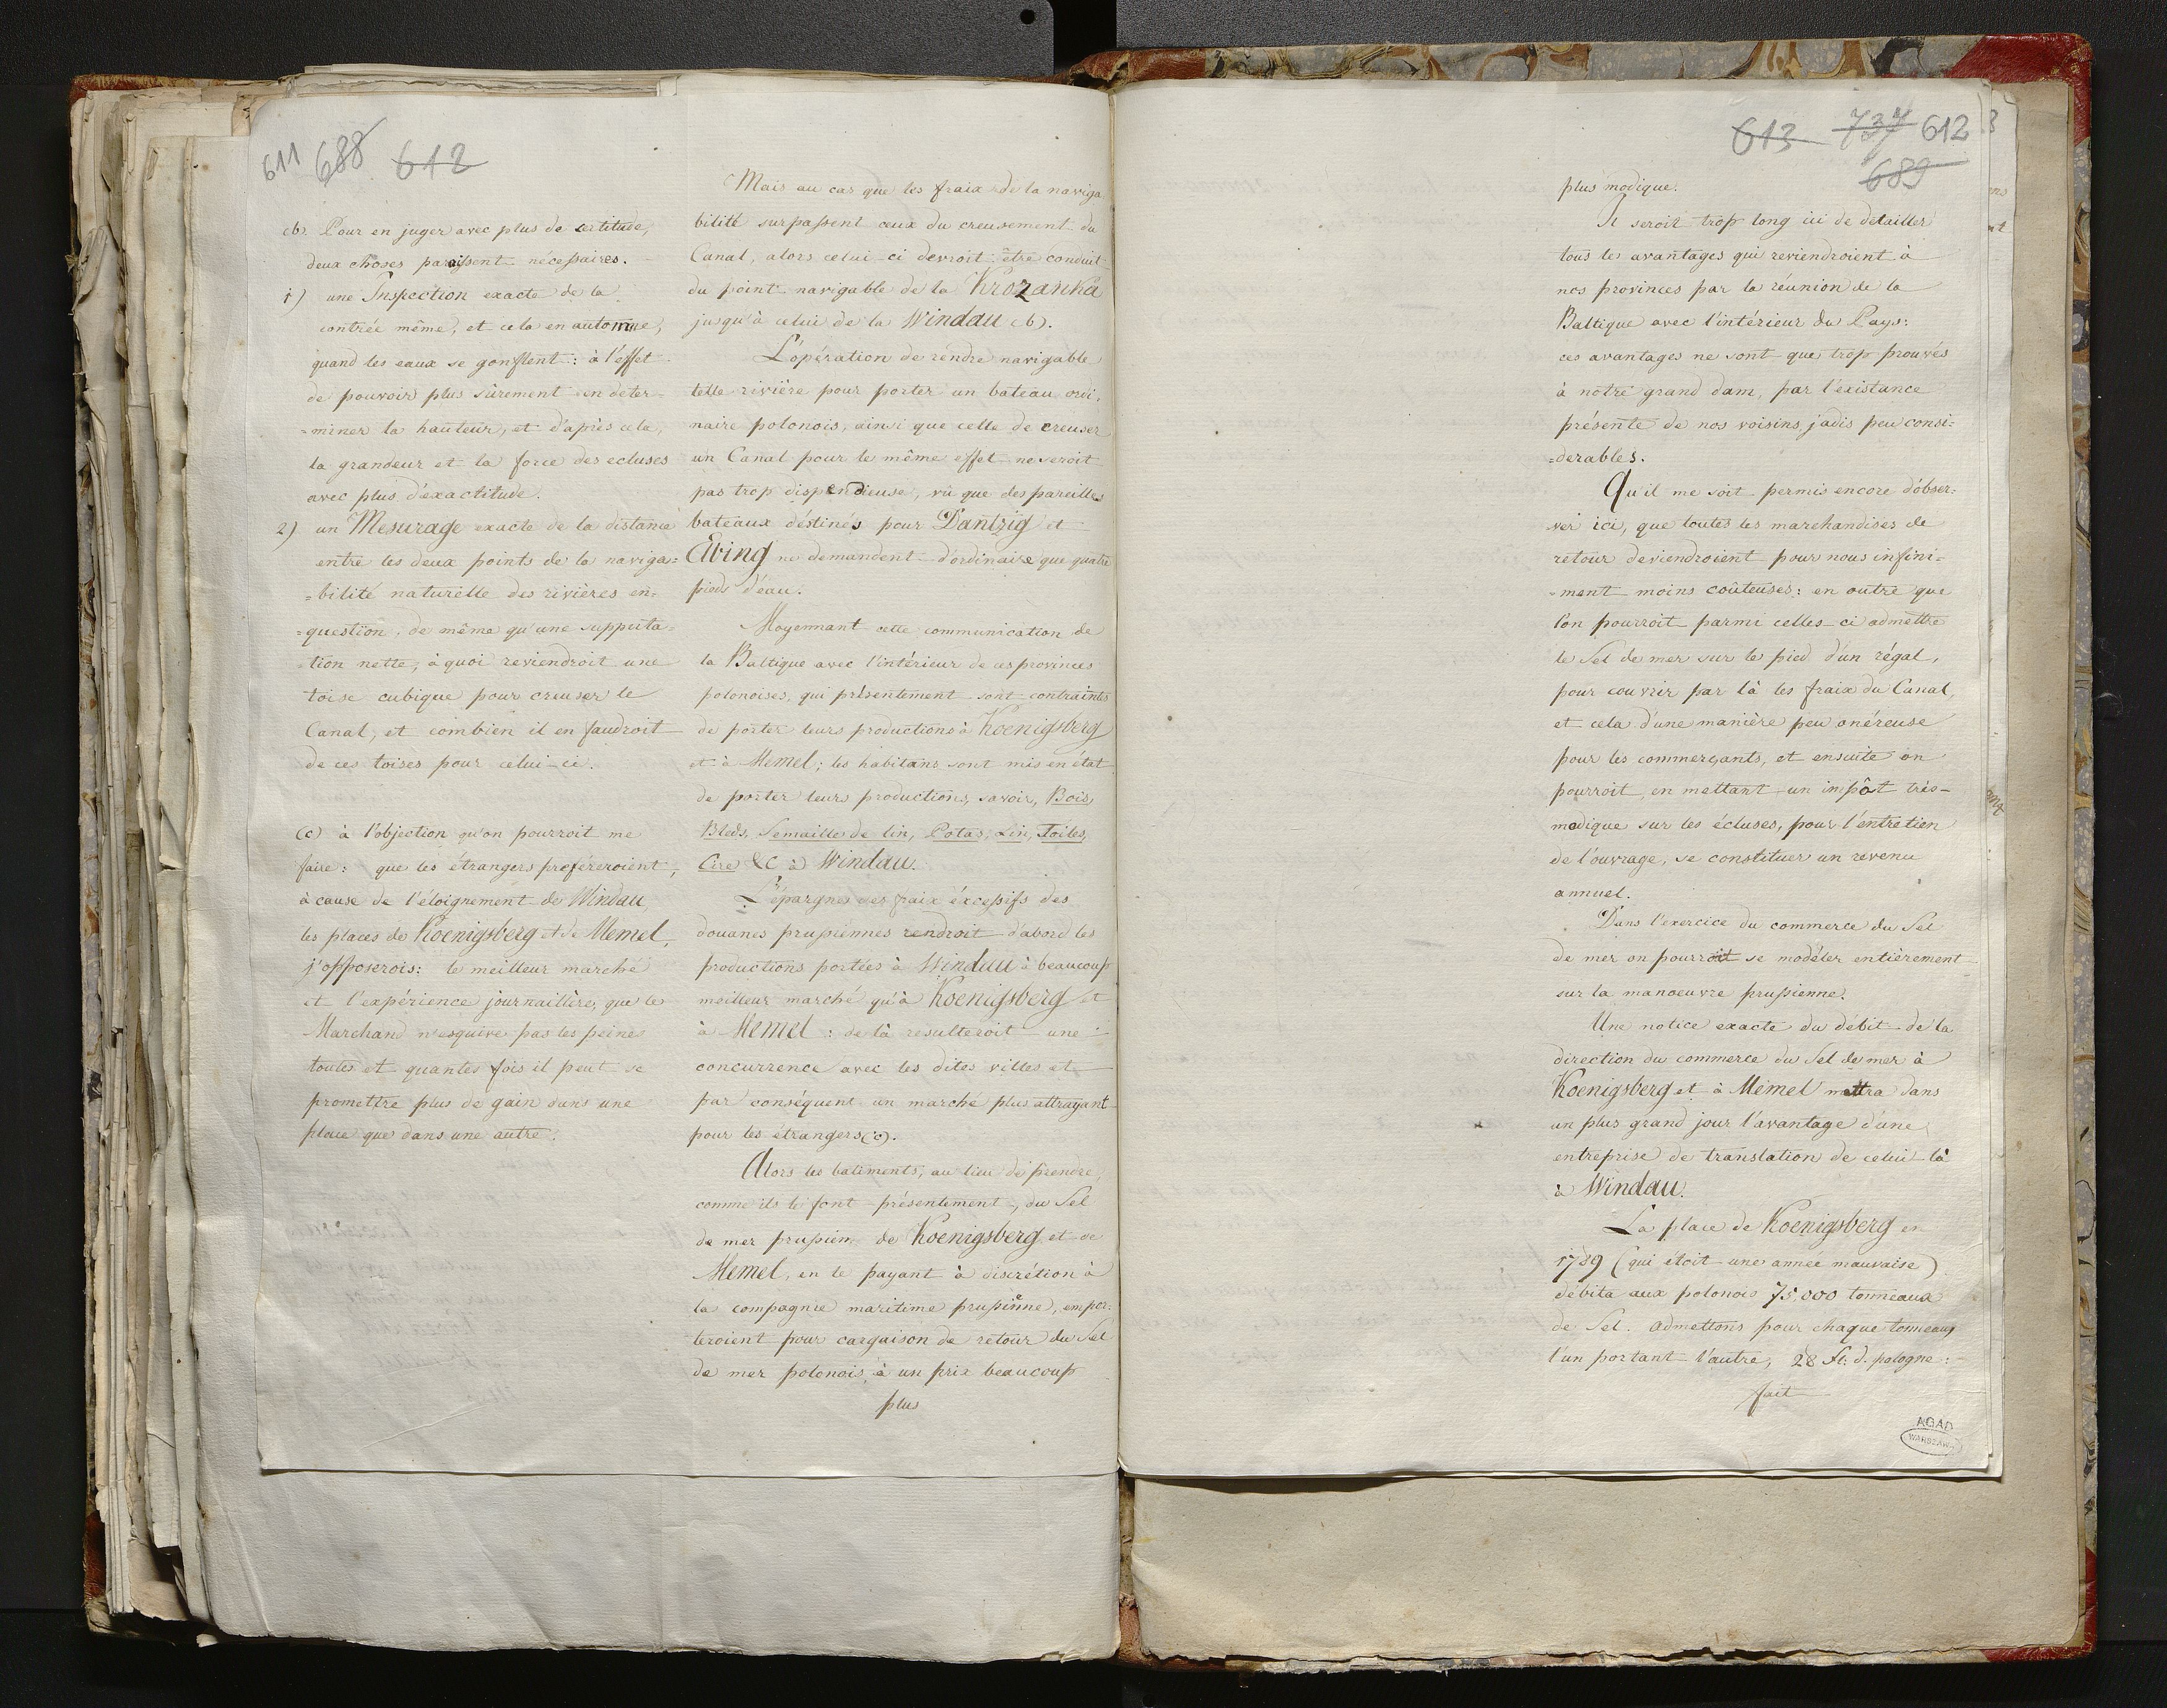 611 688 612
(b). Pour en juger avec plus de certitude,
deux choses paroissent necessaires.
1) une Inspection exacte de la
contrée même, et cela en automne,
quand les eaux se gonflent: à l'effet
de pouvoir plus sûrement en deter-
=miner la hauteur, et d'après cela,
la grandeur et la force des ecluses
avec plus d'exactitude.
2) un Mesurage exacte de la distance
entre les deux points de la naviga=
=bilité naturelle des rivières en=
=question, de même qu'une supputa=
=tion nette, à quoi reviendroit une
toise cubique pour creuser le
Canal, et combien il en faudroit
de ces toises pour celui-ci.
(c) à l'objection qu'on pourroit me
faire: que les étrangers prefereroient,
à cause de l'éloignement de Windau,
les places de Koenigsberg et de Memel,
j'opposerois: le meilleur marché
et l'expérience journaillère, que le
Marchand n'esquive pas les peines
toutes et quantes fois il peut se
promettre plus de gain dans une
place que dans une autre.
Mais au cas que les fraix de la naviga
bilité surpassent ceux du creusement du
Canal, alors celui-ci devroit être conduit
du point navigable de la Krozanka
jusqu'à celui de la Windau (b).
L'opération de rendre navigable
telle rivière pour porter un bateau ordi,
naire polonois, ainsi que celle de creuser
un Canal pour le même effet ne seroit
pas trop dispendieuse, vû que des pareilles
bateaux déstinés pour Dantzig et
Elbing ne demandent d'ordinaire que quatre
pieds d'eau.
Moyennant cette communication de
la Baltique avec l'intérieur de ces provinces
polonoises, qui présentement sont contraintes
de porter leurs productions à Koenigsberg
et à Memel; les habitans sont mis en état
de porter leurs productions, savoir, Bois,
Bleds, Semailles de lin, Potas, Lin, Toiles,
Cire &c à Windau.
L'épargne des fraix éxcessifs des
douanes prussiennes rendroit d'abord les
productions portées à Windau à beaucoup
meilleur marché qu'à Koenigsberg et
à Memel: de là resulteroit une
concurrence avec les dites villes et
par conséquent un marché plus attrayant
pour les étrangers (c).
Alors les batiments, au lieu de prendre,
comme ils le font présentement, du Sel
de mer prussien de Koenigsberg et de
Memel, en le payant à discrétion à
la compagnie maritime prussienne, empor:
teroient pour cargaison de retour du Sel
de mer polonois, à un prix beaucoup
plus
613 737 612
689
plus modique.
Il seroit trop long ici de detailler
tous les avantages qui reviendroient à
nos provinces par la réunion de la
Baltique avec l'intérieur du Pays:
ces avantages ne sont que trop prouvés
à notre grand dam, par l'existance
présente de nos voisins jadis peu consi=
=derables.
Qu'il me soit permis encore d'obser=
=ver ici, que toutes les marchandises de
retour deviendroient pour nous infini=
=ment moins coûteuses: en outre que
l'on pourroit parmi celles-ci admettre
le Sel de mer sur le pied d'un régal,
pour couvrir par là les fraix du Canal,
et cela d'une manière peu onéreuse
pour les commerçants, et ensuite on
pourroit, en mettant un impôt très-
modique sur les écluses, pour l'entretien
de l'ouvrage, se constituer un revenu
annuel.
Dans l'exercice du commerce du Sel
de mer on pourroit se modéler entièrement
sur la manoeuvre prussienne.
Une notice exacte du débit de la
direction du commerce du Sel de mer à
Koenigsberg et à Memel mettra dans
un plus grand jour l'avantage d'une
entreprise de translation de celui-là
à Windau.
La place de Koenigsberg en
1789 (qui étoit une année mauvaise)
debita aux polonois 75,000 tonneaux
de Sel. admettons pour chaque tonneaux
l'un portant l'autre, 28 fl: d. pologne:
fait
AGAD
WARSZAWA